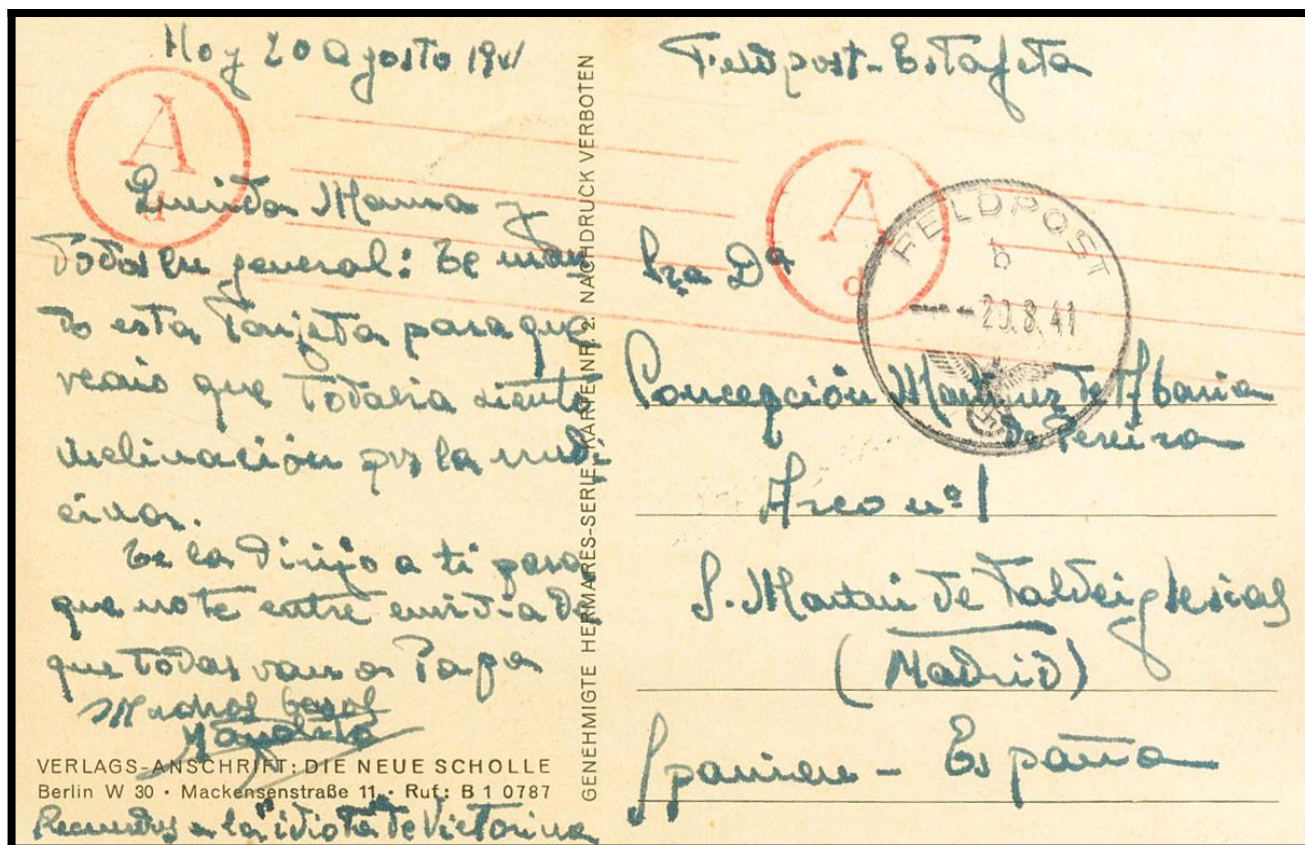 Hoy 20 Agosto 1941
Querida Mama y
Todos en general: Te man
do esta Tarjeta para que
veais que Todavia siento
inclinación por la medi
cina.
Te la dirijo a ti para
que no te entre envidia de
que todas van a Papa
Muchos besos
VERLAGS-ANSCHRIFT: DIE NEUE SCHOLLE
Berlin W 30 · Mackensenstraße 11 · Ruf: B 1 0787
Recuerdos a la idiota de Victorina
GENEHMIGTE HERMARES-SERIE, KARTE NR. 2. NACHDRUCK VERBOTEN
Feldpost-Estafeta
A
d
A
d
FELDPOST
b
20.8.41
Sra Dª
Concepción Martinez de
de Pereira
Arco nº 1
S. Martin de Valdeiglesias
(Madrid)
Spanien - España